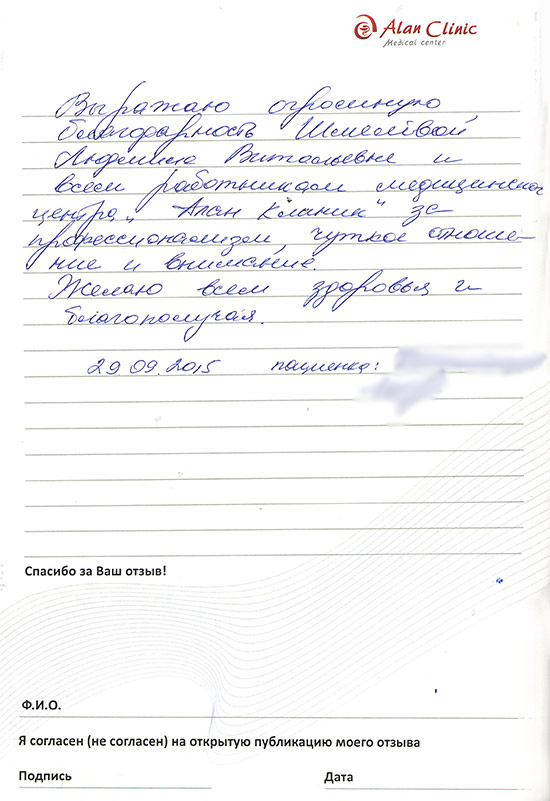 Alan Clinic
Medical center
Выражаю огромную
благодарность Шмелёвой
Людмиле Витальевне и
всем работникам медицинского
центра „Алан Клиник" за
профессионализм, чуткое отноше-
ние и внимание.
Желаю всем здоровья и
благополучия.
29.09.2015 пациентка:
Спасибо за Ваш отзыв!
Ф.И.О.
Я согласен (не согласен) на открытую публикацию моего отзыва
Подпись Дата